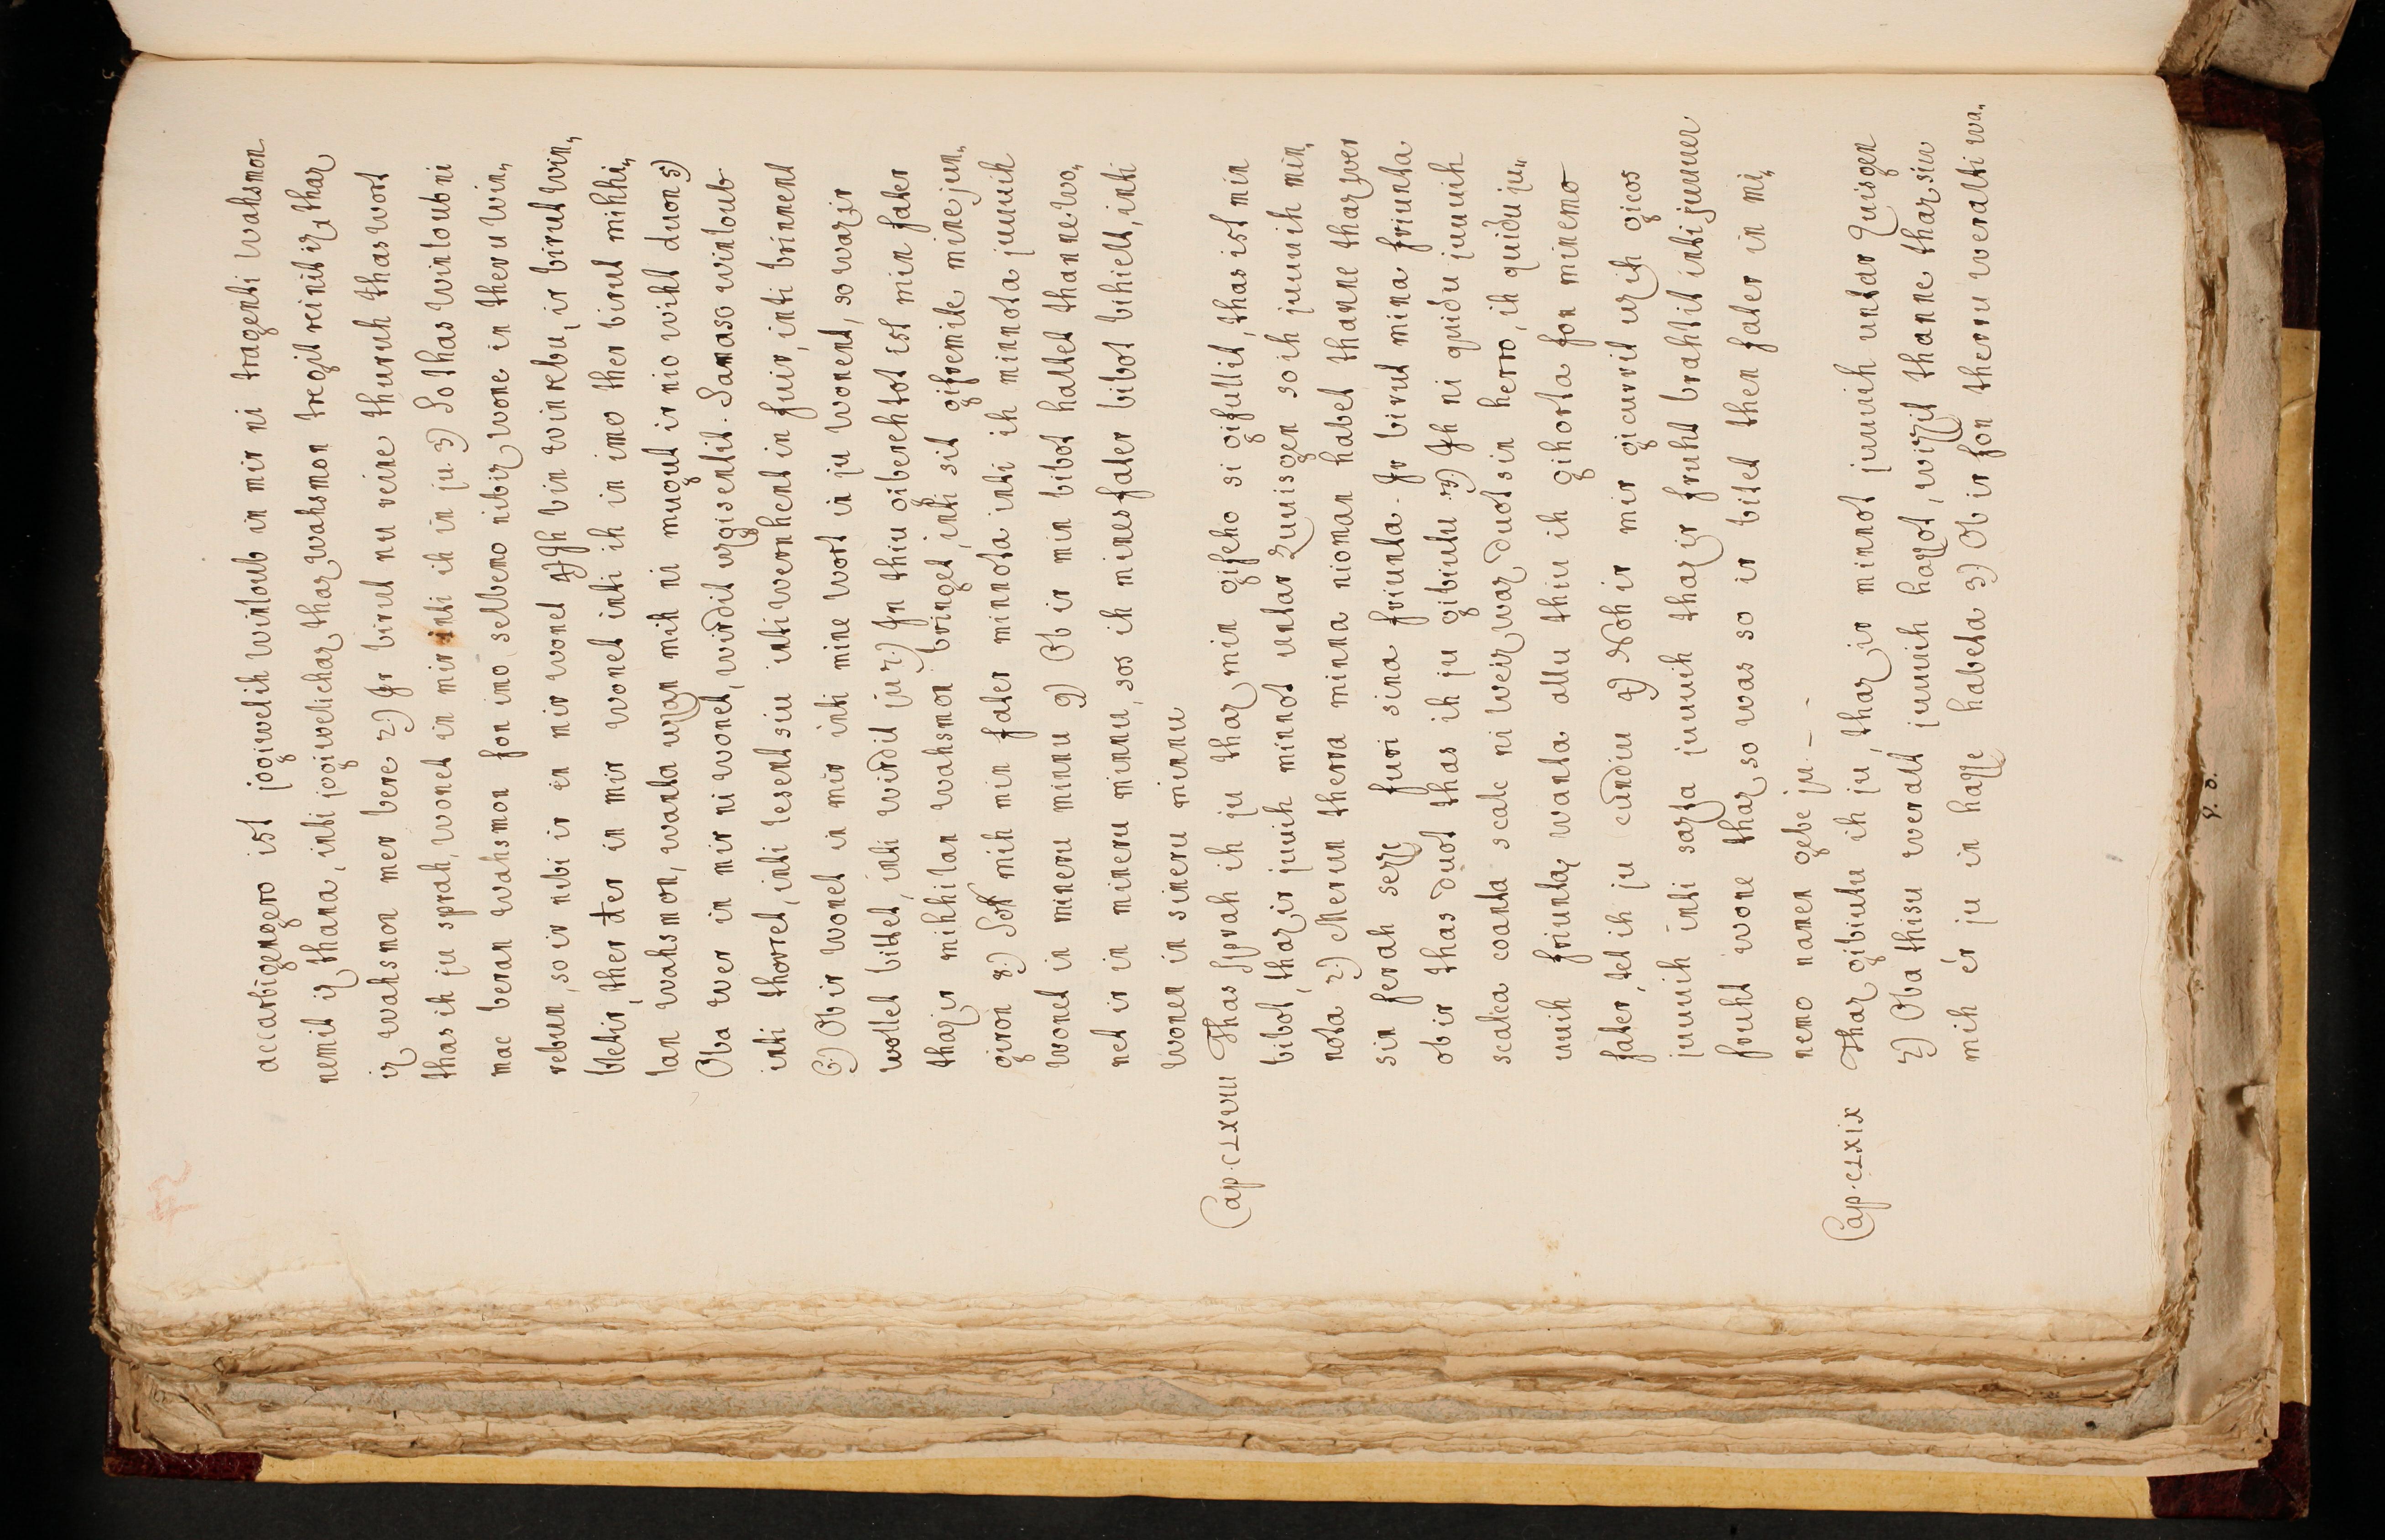 accarbigengero ist jogiwelih wintoub in mir ni tragenti wahsmon
nemit iz thana, inti jogiwelichaz thaz wahsmon tregit reinit iz, thaz
iz wahsmon mer bere 2.) Ir birut nu reine thuruh thas wort
thas ih ju sprah, wonet in mir inti ih in ju 3) So thas wintoub ni
mac beran wahsmon fon imo selbemo nibiz wone in theru win„
rebun, so ir nibi ir in mir wonet 4) Ih bin winrebu, ir birut win„
bletir, ther der in mir wonet inti ih in imo ther birut mihhi„
lan wahsmon, wanta uzan mih ni mugut ir nio wiht duon 5)
Oba wer in mir ni wonet, wirdit uzgisentit. Samaso wintoub
inti thorret, inti lesent siu inti wernhent in fuir, inti brinnent
6.) Ob ir wonet in mir inti mine wort in ju wonent, so waz ir
wollet bittet, inti wirdit ju 7.) In thiu giberehtot ist min fater
thaz ir mihhilan wahsmon bringet, inti sit gifremite mine jun„
giron 8.) Soh mih min fater minnota inti ih minnota juuuih
wonet in mineru minnu 9) Ob ir min bibot haltet thanne wo„
net ir in mineru minnu, sos ih mines fater bibot bihielt, inti
wonen in sineru minnu
Cap. CLXVIII Thas sprah ih ju thaz min gifeho si gifullit, thas ist min
bibot, thaz ir juuih minnot untar zuuisgen so ih juuuih min„
nota 2.) Merun therra minna nioman habet thanne thaz wer
sin ferah sezze furi sina friunta. Ir birut mina friunta
ob ir thas duot thas ih ju gibiutu 3.) Ih ni quidu juuuih
scalca wanta scalc ni weiz waz duot sin herro, ih quidu ju„
uuih friunta, wanta allu thiu ih gihorta fon minemo
fater, tet ih ju cundiu 4) Noh ir mir gicurrit uz ih gicos
juuuih inti sazta juuuih thaz ir fruht brahtit inti juuuer
fruht wone thaz so was so ir bitet then fater in mi„
nemo namen gebe ju. – –
Cap. CLXIX Thaz gibiutu ih ju, thaz ir minnot juuuih untar zuisgen
2.) Oba thisu weralt juuuih hazzot, wizzit thanne thaz siu
mih ér ju in hazze habeta 3.) Ob ir fon theru weralti wa„